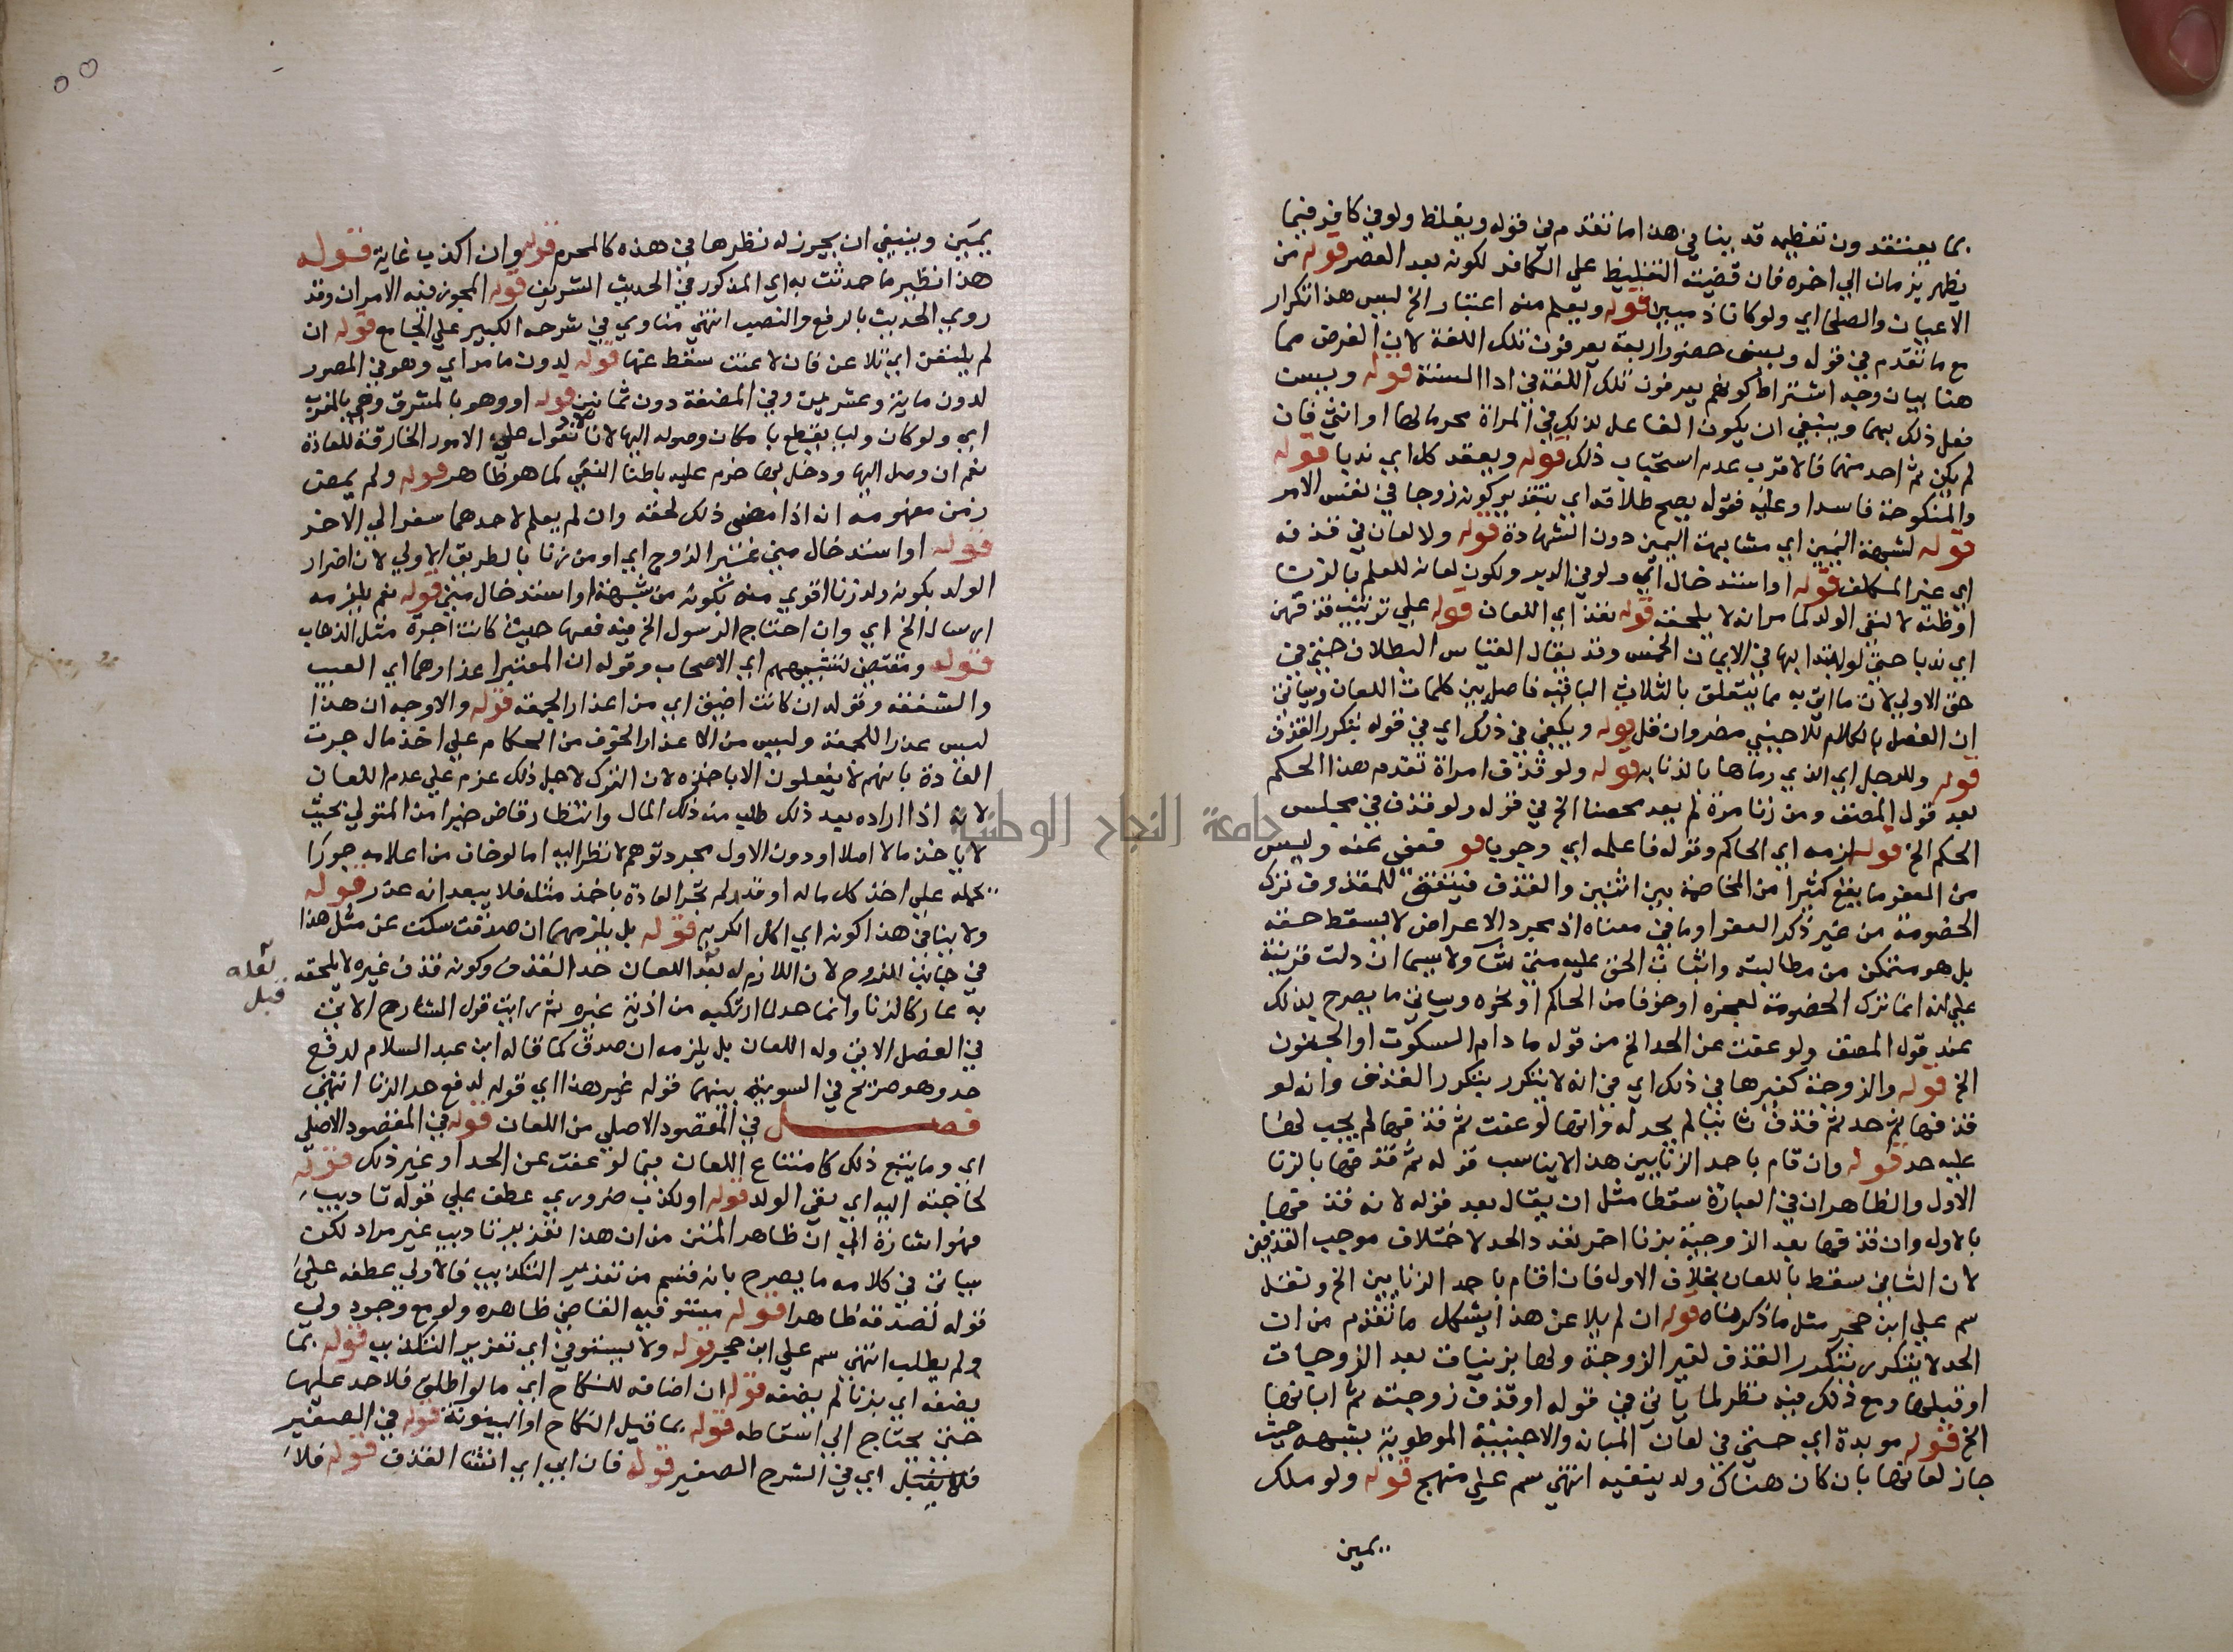 بما يعتقدون تعظيمه قد ينافي هذا ما تقدم في قوله ويغلظ ولو في كافر فيما
يظهر بزمان الي اخره فان قضيته التغليظ علي الكافر لكونه بعد العصر قوله من
الاعيان والصلحا اي ولو كانا ذميين قوله ويعلم منه اعتبار الخ ليس هذا تكرار
مع ما تقدم في قوله ويسن حضور اربعة يعرفون تلك اللغة لان الغرض مما
هنا بيان وجه اشتراط كونهم يعرفون تلك اللغة في اداء السنة قوله ويسن
فعل ذلك بهما وينبغي ان يكون الفاعل لذلك في المراة محرما لها او انثي فان
لم يكن ثم احد منهما فالاقرب عدم استحباب ذلك قوله ويعقد كل اي ندبا قوله
والمنكوحة فاسدا وعليه فقوله يصح طلاقه اي بتقدير كونه زوجا في نفس الامر
قوله لشبهة اليمين اي مشابهة اليمين دون الشهادة قوله ولا لعان في قذفه
اي غير المكلف قوله او استدخال اي ولو في الدبر ولكون لعانه للعلم بالزنا
او ظنه لا لنفي الولد لما مر انه لا يلحقه قوله نفذ اي اللعان قوله علي ترتيب قذفهن
اي ندبا حتي لو ابتدا بها في الايمان الخمس وقد يقال القياس البطلان حتي في
حق الاولي لان ما اتي به مما يتعلق بالثلاث الباقية فاصل بين كلمات اللعان وسياتي
ان الفصل بالكلام للاجنبي مضر وان قل قوله ويكفي في ذلك اي في قوله بتكرر القذف
قوله وللرجل اي الذي رماها بالزنا به قوله ولو قذف امراة تقدم هذا الحكم
بعد قول المصنف ومن زنا مرة لم يعد محصنا الخ في قوله ولو قذف في مجلس
الحكم الخ قوله لزمه اي الحاكم وقوله فاعلمه اي وجوبا قو فعفي عنه وليس
من العفو ما يقع كثيرا من المخاصمة بين اثنين والقذف فيتفق للمقذوف ترك
الخصومة من غير ذكر العفو او ما في معناه اذ مجرد الاعراض لا يسقط حقه
بل هو متمكن من مطالبته واثبات الحق عليه متي شا ولا سيما ان دلت قرينة
علي انه انما ترك الخصومة لعجزه او خوفا من الحاكم او نحوه وسياتي ما يصرح بذلك
عند قول المصنف ولو عفت عن الحد الخ من قوله ما دام السكوت او الجنون
الخ قوله والزوجة كغيرها في ذلك اي في انه لا يتكرر بتكرر القذف وانه لو
قذفها ثم حد ثم قذف ثانيا لم يحد له وانها لو عفت ثم قذفها لم يجب لها
عليه حد قوله وان قام باحد الزنايين هذا لا يناسب قوله ثم قذفها بالزنا
الاول والظاهر ان في العبارة سقطا مثل ان يقال بعد قوله لانه قذفها
بالاول وان قذفها بعد الزوجية بزنا اخر تعدد الحد لاختلاف موجب القذفين
لان الثاني سقط باللعان بخلاف الاول فان اقام باحد الزنايين الخ ونقل
سم علي ابن حجر مثل ما ذكرناه قوله ان لم يلاعن هذا يشكل ما تقدم من ان
الحد لا يتكرر بتكرر القذف لغير الزوجة ولها بزنيات بعد الزوجيات
او قبلها ومع ذلك فيه نظر لما ياتي في قوله او قذف زوجته ثم ابانها
الخ قوله موبدة اي حتي في لعان المبانة والاجنبية الموطوية بشبهة حيث
جاز لعانها بان كان هناك ولد ينفيه انتهي سم علي منهج قوله ولو ملك
يمين
يمين وينبغي ان يجوز له نظرها في هذه كالمحرم قوله وان اكذب غاية قوله
هذا نظير ما حدثت به اي المذكور في الحديث الشريف قوله المجوز فيه الامران وقد
روي الحديث بالرفع والنصب انتهي مناوي في شرحه الكبير علي الجامع قوله ان
لم يلتعن اي تلاعن فان لاعنت سقط عنها قوله لدون ما مر اي وهو في المصور
لدون ماية وعشرين وفي المضغة دون ثمانين قوله او وهو بالمشرق وهي بالمغرب
اي ولو كان وليا يقطع بامكان وصوله اليها لانا لا نعول علي الامور الخارقة للعادة
نعم ان وصل اليها ودخل بها حرم عليه باطنا النفي كما هو ظاهر قوله ولم يمض
زمن مفهومه انه اذا مضي ذلك لحقه وان لم يعلم لاحدهما سفر الي الاخر
قوله او استدخال مني غير الزوج اي او من زنا بالطريق الاولي لان اضرار
الولد بكونه ولد زنا اقوي منه بكونه من شبهة او استدخال مني قوله نعم يلزمه
ارسال الخ اي وان احتاج الرسول الخ فيدفعها حيث كانت اجرة مثل الذهاب
قوله ومقتضي تشبيههم اي الاصحاب وقوله ان المعتبر اعذارهما اي العيب
والشفعة وقوله ان كانت اضيق اي من اعذار الجمعة قوله والاوجه ان هذا
ليس عذرا للجمعة وليس من الاعذار الخوف من الحكام علي اخذ مال جرت
العادة بانهم لا يفعلون الا باخذه لان الترك لاجل ذلك عزم علي عدم اللعان
لانه اذا اراده بعد ذلك طلب منه ذلك المال وانتظار قاض خيرا من المتولي بحيث
لا ياخذ مالا اصلا او دون الاول مجرد توهم لا نظر اليه اما لو خاف من اعلامه جورا
يحمله علي اخذ كل ماله او قدر لم تجر العادة باخذ مثله فلا يبعد انه عذر قوله
ولا ينافي هذا كونه اي اكل الكريه قوله بل يلزمهما ان صدقت سكت عن مثل هذا
في جانب الزوج لان اللازم له بعد اللعان حد القذف وكونه قذف غيره لا يلحقه
لعله
قبل
به عار كالزنا وانما حد لما ارتكبه من اذية غيره ثم رايت قول الشارح الاتي
في الفصل الاتي وله اللعان بل يلزمه ان صدق كما قاله ابن عبد السلام لدفع
حد وهو صريح في التسوية بينهما قوله غير هذا اي قوله لدفع حد الزنا انتهي
فصل في المقصود الاصلي من اللعان قوله في المقصود الاصلي
اي وما يتبع ذلك كامتناع اللعان فيما لو عفت عن الحد او غير ذلك قوله
لحاجته اليه اي نفي الولد قوله او لكذب ضروري عطف علي قوله تاديب
فهو اشارة الي ان ظاهر المتن من ان هذا تعذير تاديب غير مراد لكن
سياتي في كلامه ما يصرح بانه قسم من تعذير التكذيب فالاولي عطفه علي
قوله لصدقه ظاهرا قوله مستوفيه القاضي ظاهره ولو مع وجود ولي
ولم يطلب انتهي سم علي ابن حجر قوله ولا يستوفي اي تعزير التكذيب قوله بما
يضفه اي بزنا لم يضفه قوله ان اضافه للنكاح اي ما لو اطلق فلا حد عليها
حتي يحتاج الي اسقاطه قوله بما قبل النكاح او البينونة قوله في الصغير
فلا يقبل اي في الشرح الصغير قوله فان ابي اي انشا القذف قوله فلا